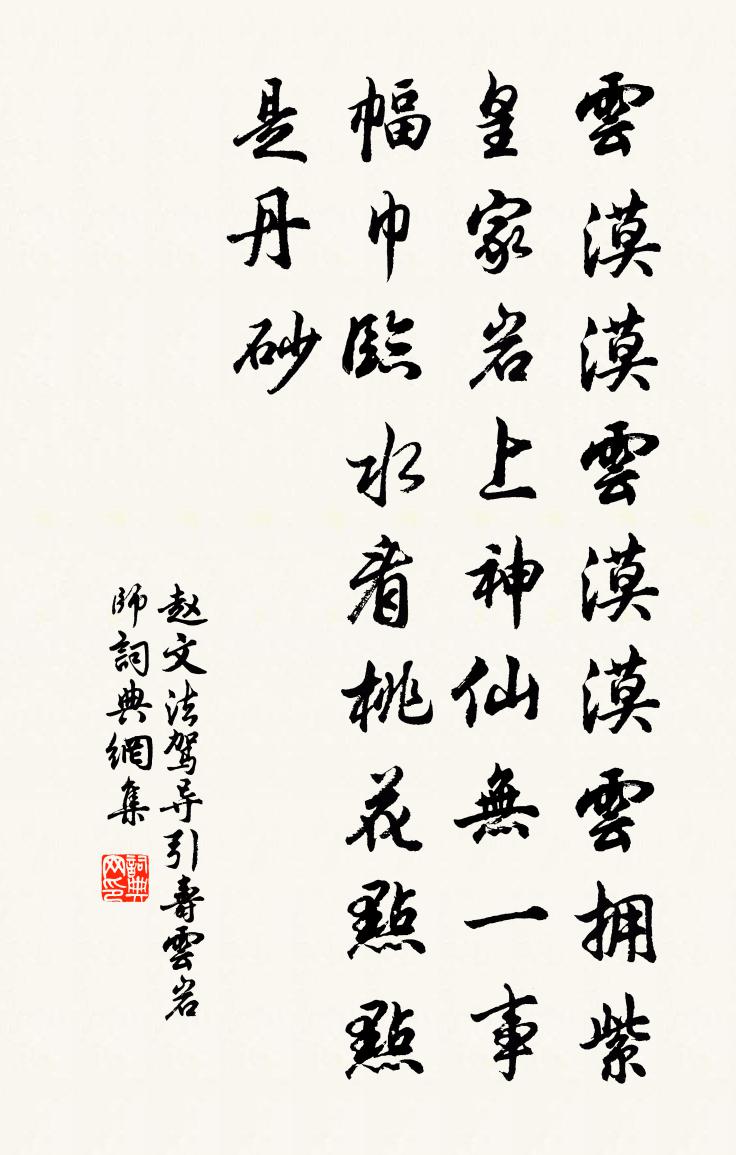 雲漠漠雲漠漠雲拥紫
皇家岩上神仙無一事
幅巾臨水看桃花點點
是丹砂
赵文法驾导引壽雲岩
師詞典網集
詞典网印